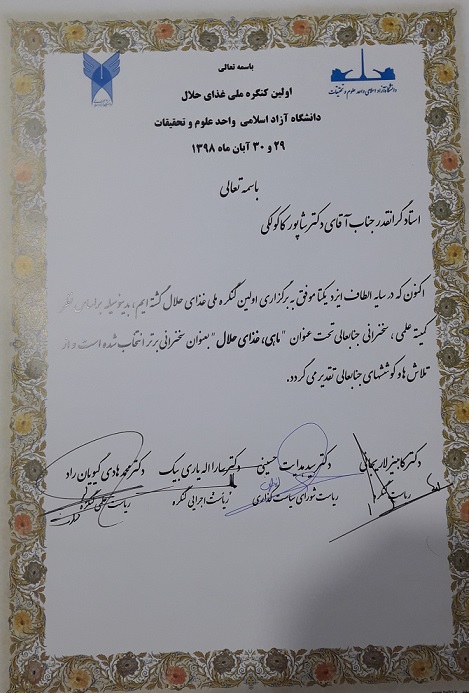 باسمه تعالی
اولین کنگره ملی غذای حلال
دانشگاه آزاد اسلامی واحد علوم و تحقیقات
۲۹ و ۳۰ آبان ماه ۱۳۹۸
دانشگاه آزاد اسلامی واحد علوم و تحقیقات
باسمه تعالی
استاد گرانقدر جناب آقای دکتر شاپور کاکولکی
اکنون که در سایه الطاف ایزد یکتا موفق به برگزاری اولین کنگره ملی غذای حلال گشته ایم، بدینوسیله بر اساس نظر
کمیته علمی، سخنرانی جنابعالی تحت عنوان "ماهی، غذای حلال" بعنوان سخنرانی برتر انتخاب شده است و از
تلاش ها و کوششهای جنابعالی تقدیر می گردد.
دکتر کامبیز لاریجانی دکتر سید هدایت حسینی دکتر سارا اله یاری بیک دکتر محمد هادی گیویان راد
ریاست کنگره ریاست شورای سیاست گذاری ریاست اجرایی کنگره ریاست علمی کنگره